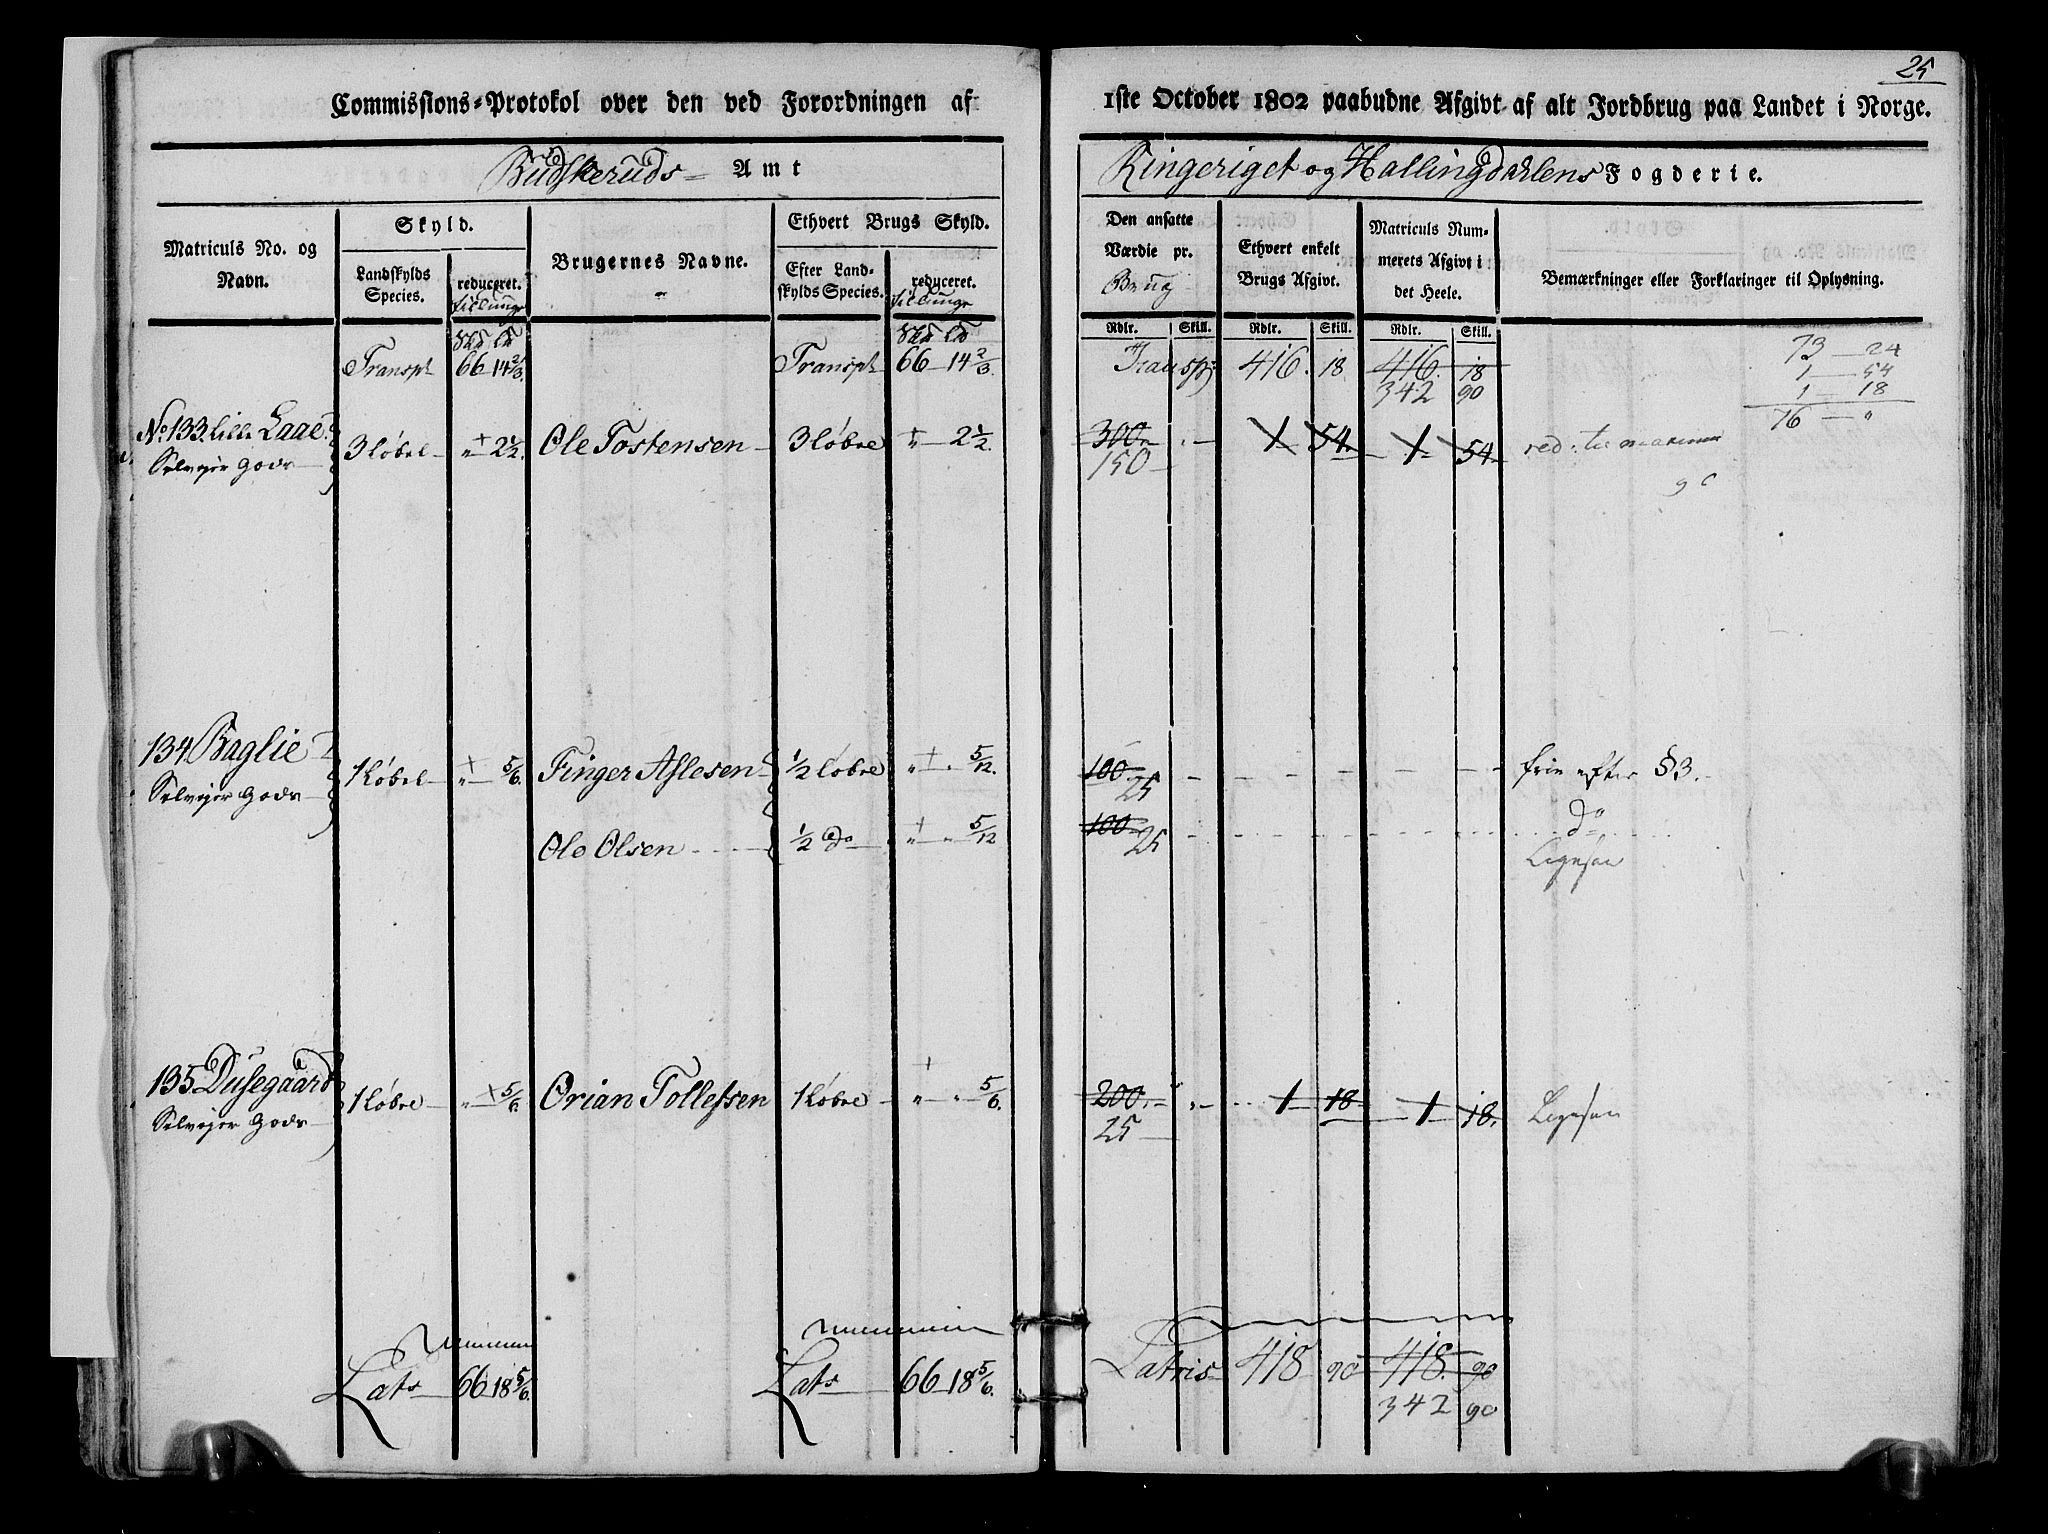 25
Commissions-Protokol over den ved Forordningen af
1ste October 1802 paabudne Afgivt af alt Jordbrug paa Landet i Norge.
Budskeruds Amt
Ringeriget og Hallingdahlens Fogderie.
Matriculs No. og Navn.
Skyld.
Landskylds Species.
reduceret.
Brugernes Navne.
Ethvert Brugs Skyld.
Efter Landskylds Species.
reduceret.
Den ansatte Værdie pr. Brug
Ethvert enkelt Brugs Afgivt.
Matriculs Nummerets Afgivt i det Heele.
Bemærkninger eller Forklaringer til Oplysning.
Rdlr. Skill. Rdlr. Skill. Rdlr. Skill.
Transpt 66 14 2/3 Transpt 66 14 2/3. Transp: 416. 18 416. 18
342 90
73 — 24
1 — 54
1 — 18
76 — "
No 133. Lille Laae 3 Løbel " 2 1/2. Ole Tostensen 3 Løbre " 2 1/2. 300 1 54. 1 54
Selvejer Gods 150
134 Baglie 1 Løbel " 5/6. Finger Aslesen 1/2 Løbre " " 5/12. 100 frie efter § 3.
Selvejer Gods 25
Ole Olsen 1/2 do " " 5/12 100 do
25
135 Dusegaard 1 Løbre " 5/6. Orian Tollefsen 1 Løbre " " 5/6. 200 " 1 18 1 18.
Selvejer Gods 25
Lats 66 18 5/6. Lats 66 18 5/6. Latris 418 90 418. 90
342 90